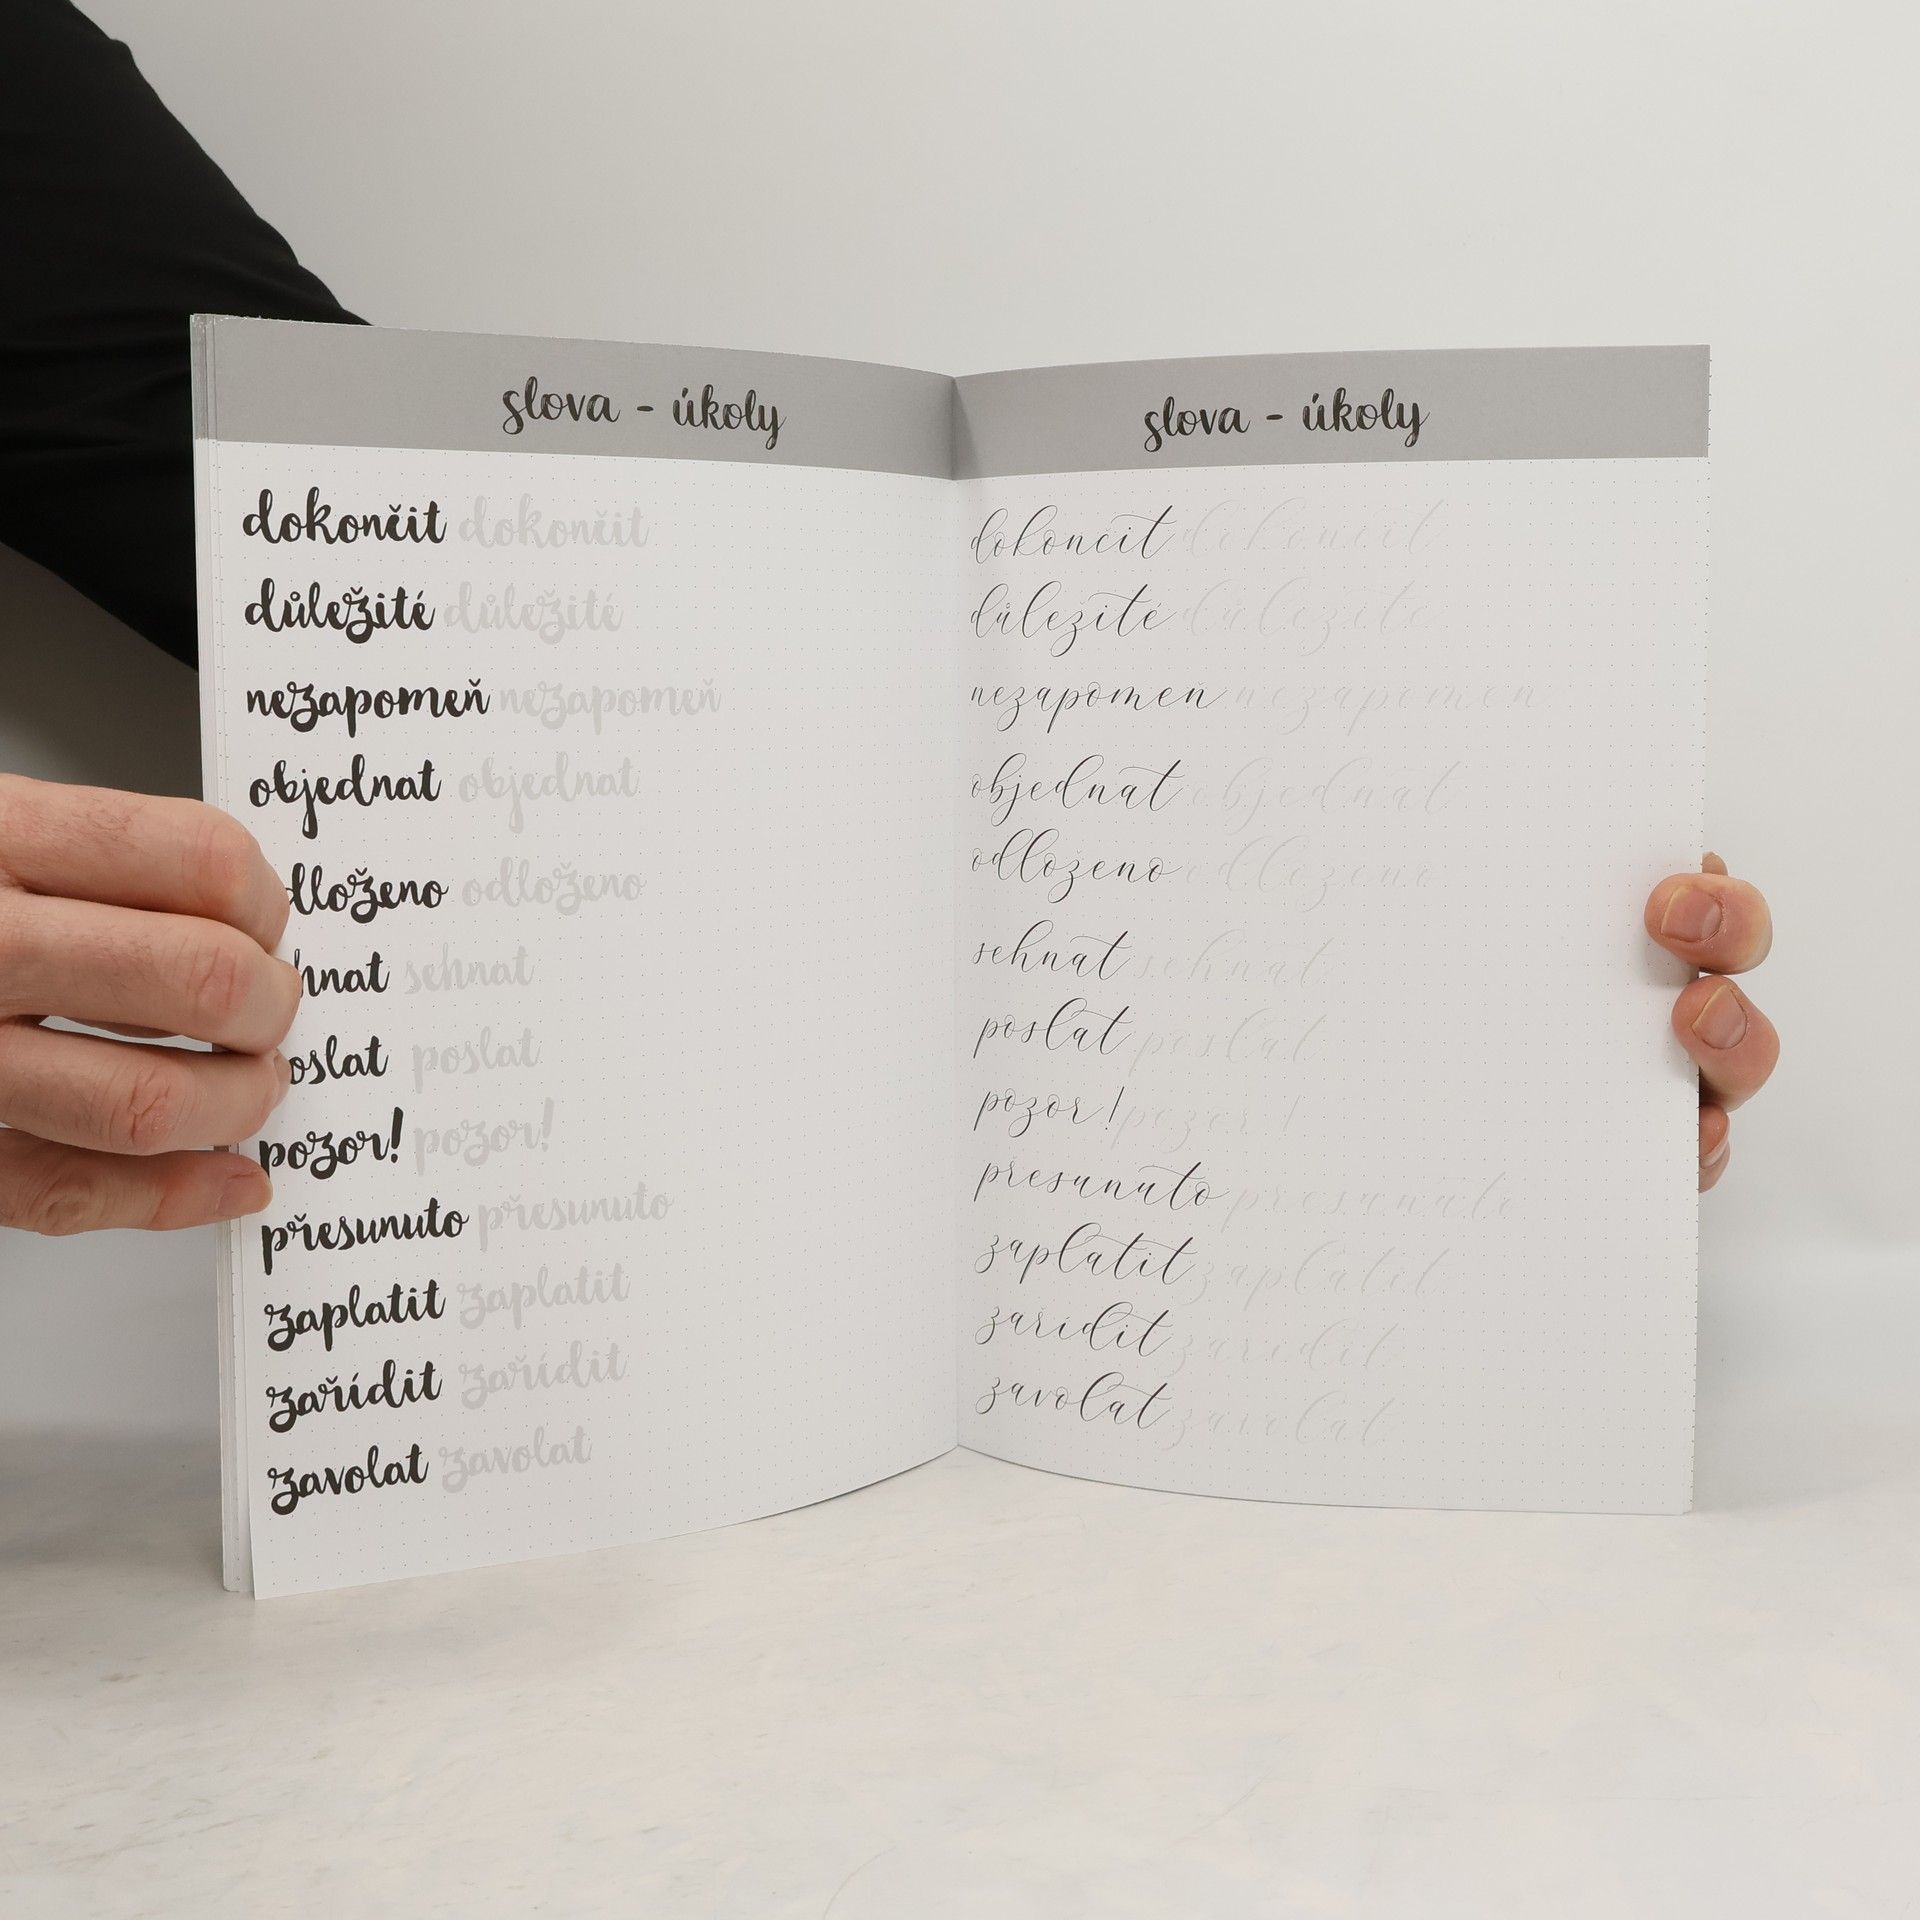 slova - úkoly
dokončit dokončit
důležité důležité
nezapomeň nezapomeň
objednat objednat
dloženo odloženo
hnat sehnat
oslat poslat
pozor! pozor!
přesunuto přesunuto
zaplatit zaplatit
zařídit zařídit
zavolat zavolat
slova - úkoly
dokoncit dokoncit
důlezité důlezité
nezapomeň nezapomen
objednat objednat
odlozeno odlozeno
sehnat sehnat
poslat poslat
pozor! pozor!
presunuto presunuto
zaplatit zaplatit
zaridit zaridit
zavolat zavolat